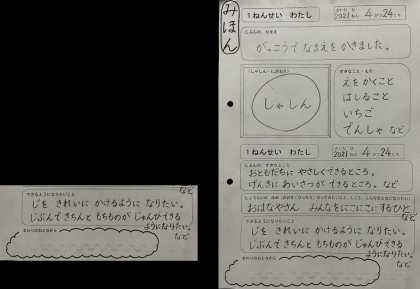 など
できるようになりたいこと
じを きれいに かけるように なりたい。
じぶんで きちんと もちものが じゅんびできる
ようになりたい。
など
みほん
1ねんせい わたし
2021ねん 4がつ24にち
じぶんの なまえ
がっこうで なまえを かきました。
しゃしん
すきなこと・もの
えを かくこと
はしること
いちご
でんしゃ など
1ねんせい わたし
2021ねん 4がつ24にち
じぶんの すきなところ
おともだちに やさしくできるところ。
げんきに あいさつが できるところ。など
おはなやさん みんなをにこにこにするひと
など
できるようになりたいこと
じを きれいに かけるように なりたい。
じぶんで きちんと もちものが じゅんびできる
ようになりたい。
など